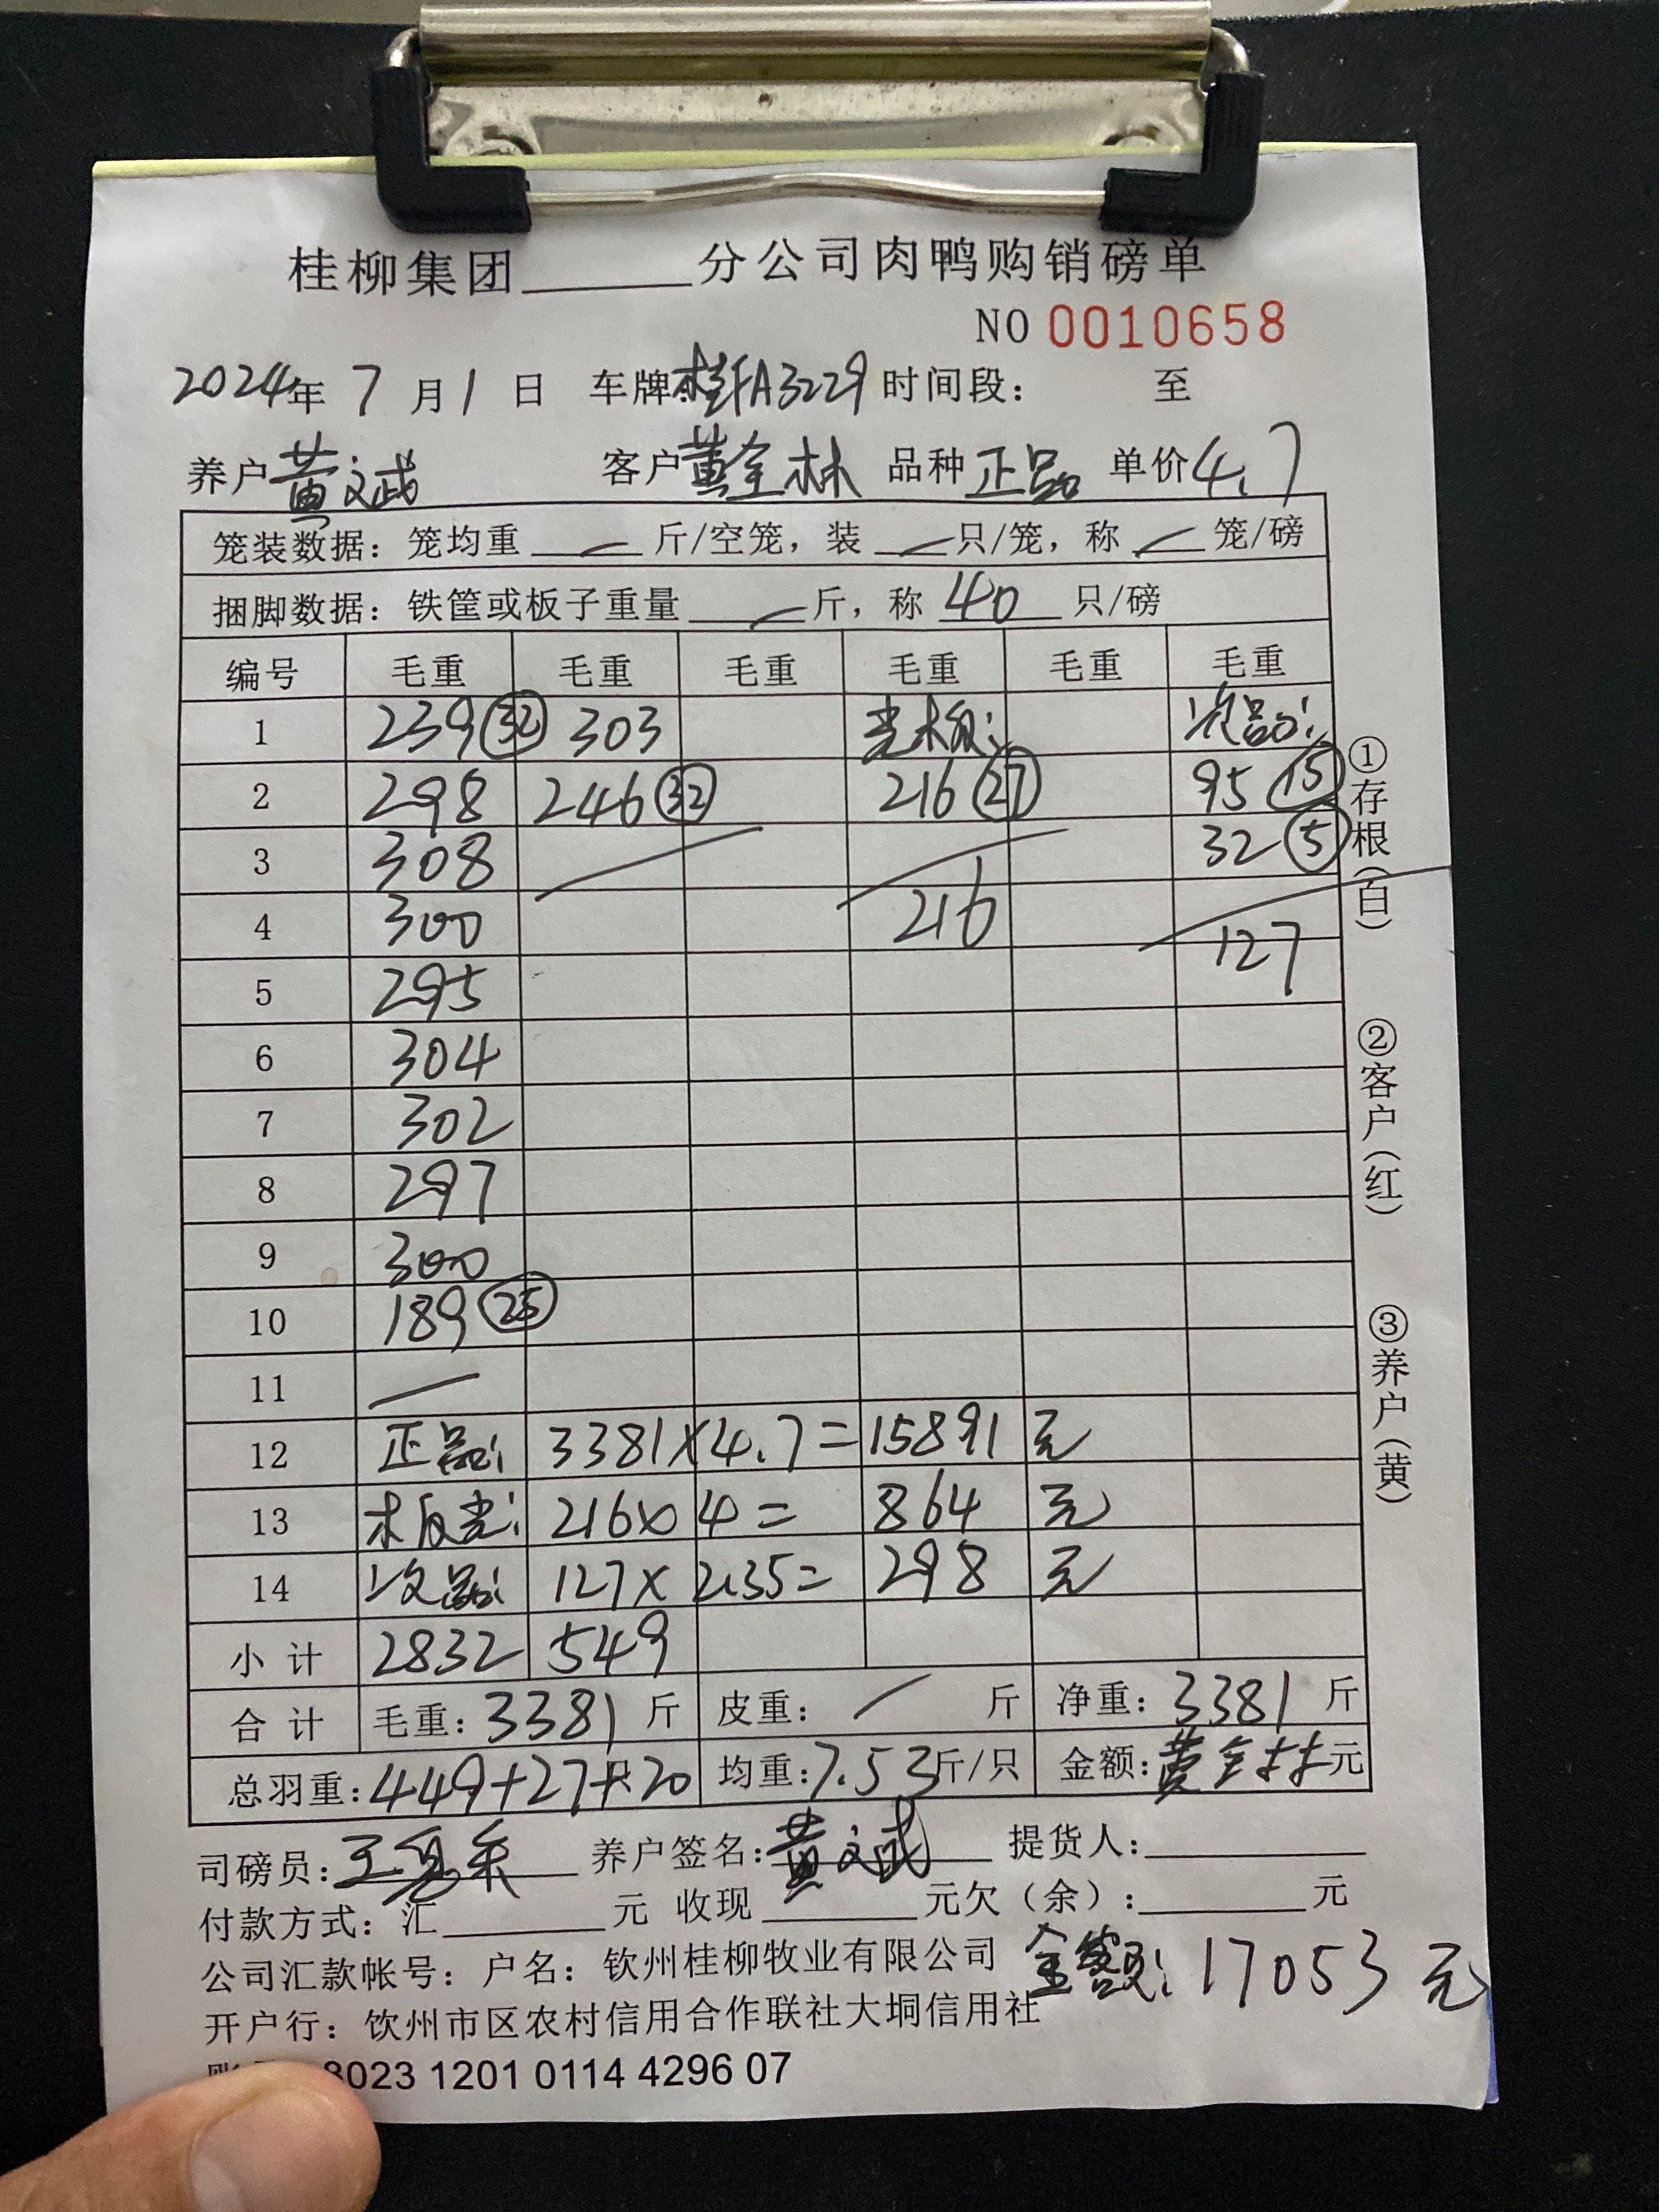 桂柳集团______分公司肉鸭购销磅单
NO 0010658
2024年 7 月 1 日 车牌:桂FA3229 时间段: 至
养户 黄文斌 客户 黄全林 品种 正品 单价 4.7
笼装数据: 笼均重 — 斤/空笼, 装 — 只/笼, 称 — 笼/磅
捆脚数据: 铁筐或板子重量 — 斤, 称 40 只/磅
编号 毛重 毛重 毛重 毛重 毛重 毛重
1 239 (32) 303 光板: 次品:
2 298 246 (32) 216 (27) 95 (15)
3 308 32 (5)
4 300 216 127
5 295
6 304
7 302
8 297
9 300
10 189 (25)
11 —
12 正品: 3381×4.7= 15891 元
13 板光: 216× 4= 864 元
14 次品: 127× 2.35= 298 元
小计 2832 549
合计 毛重: 3381 斤 皮重: / 斤 净重: 3381 斤
总羽重: 449+27+20 均重: 7.53斤/只 金额: 黄全林元
司磅员: 养户签名: 黄文斌 提货人:
付款方式: 汇______元 收现______元欠(余):______元
公司汇款帐号: 户名: 钦州桂柳牧业有限公司 金额: 17053 元
开户行: 钦州市区农村信用合作联社大垌信用社
8023 1201 0114 4296 07
①存根(白)
②客户(红)
③养户(黄)